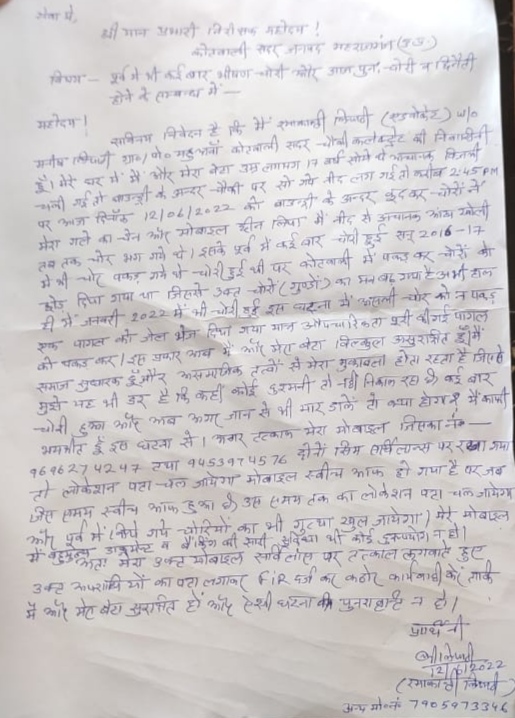 सेवा में,
श्री मान प्रभारी निरीक्षक महोदय !
कोतवाली सदर जनपद महराजगंज (उ.प्र.)
विषय — पूर्व में भी कई बार भीषण चोरी और आज पुनः चोरी व छिनैती
होने के सम्बन्ध में —
महोदय !
सविनय निवेदन है कि मैं रमाकान्ती त्रिपाठी (एडवोकेट) w/o
त्रिपाठी ग्रा०/पो० महुअवां कोतवाली सदर चौकी कलेक्ट्रेट की निवासिनी
हूँ। मेरे घर में मैं और मेरा बेटा उम्र लगभग 17 वर्ष सोये थे अचानक बिजली
चली गई तो बाउन्ड्री के अन्दर चौकी पर सो गये नींद लग गई तो करीब 2:45 PM
पर आज दिनाँक 12/06/2022 को बाउन्ड्री के अन्दर कूदकर चोरों ने
मेरा गले का चेन और मोबाइल छीन लिया मैं नींद से अचानक आँख खोली
तब तक चोर भाग गये थे। इसके पूर्व में कई बार चोरी हुई सन् 2016-17
में भी चोर पकड़े गये थे चोरी हुई थी पर कोतवाली में पकड़कर चोरों को
छोड़ दिया गया था जिससे उक्त चोरों (गुण्डों) का मन बढ़ गया है अभी हाल
ही में जनवरी 2022 में भी चोरी हुई इस घटना में असली चोर को न पकड़
एक पागल को जेल भेज दिया गया मात्र औपचारिकता पूरी की गई पागल
को पकड़ कर। इस प्रकार आज मैं और मेरा बेटा बिल्कुल असुरक्षित हूँ। मैं
समाज सुधारक हूँ और असामाजिक तत्वों से मेरा मुकाबला होता रहता है जिससे
मुझे यह भी डर है कि कहीं कोई दुश्मनी तो नहीं निकाल रहा है, कई बार
चोरी हुआ और अब अगर जान से भी मार डालें तो क्या होगा मैं काफी
भयभीत हूँ इस घटना से। अगर तत्काल मेरा मोबाइल जिसका नं० —
9696274247 तथा 9453974576 दोनों सिम सर्विलान्स पर रखा गया
तो लोकेशन पता चल जायेगा मोबाइल स्वीच आफ हो गया है पर जब
जिस समय स्वीच आफ हुआ है उस समय तक का लोकेशन पता चल जायेगा
और पूर्व में किये गये चोरियों का भी गुत्थी खुल जायेगा। मेरे मोबाइल
में बहुमूल्य डाक्यूमेंट व बैंकिंग की सारी सुविधा थी कोई दुरूपयोग न हो।
अतः मेरा उक्त मोबाइल सर्विलांस पर तत्काल लगवाते हुए
उक्त अपराधियों का पता लगाकर FIR दर्ज कर कठोर कार्यवाही करें ताकि
मैं और मेरा बेटा सुरक्षित हों और ऐसी घटना की पुनरावृत्ति न हो।
प्रार्थिनी
12/6/2022
(रमाकान्ती त्रिपाठी)
अन्य मो०नं० 7905973346